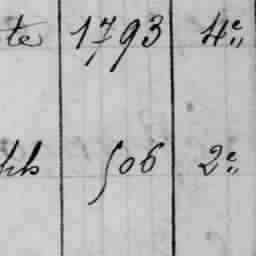 te 1793 4e
506 2e